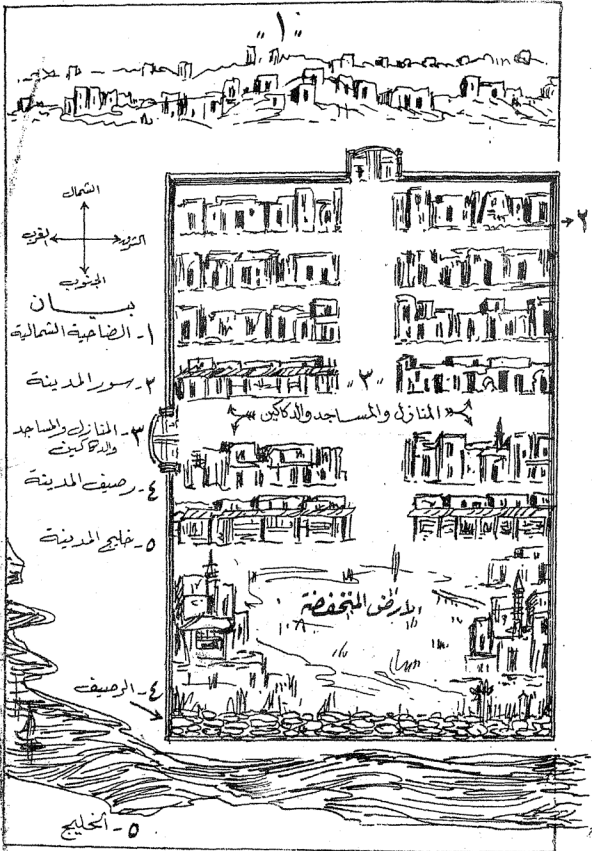 "١"
٢
الشمال
الشرق
الغرب
الجنوب
بيــان
١- الضاحية الشمالية
٢- سور المدينة
٣- المنازل والمساجد
والدكاكين
٤- رصيف المدينة
٥- خليج المدينة
"٣"
المنازل والمساجد والدكاكين
الأرض المنخفضة
٤- الرصيف
٥- الخليج